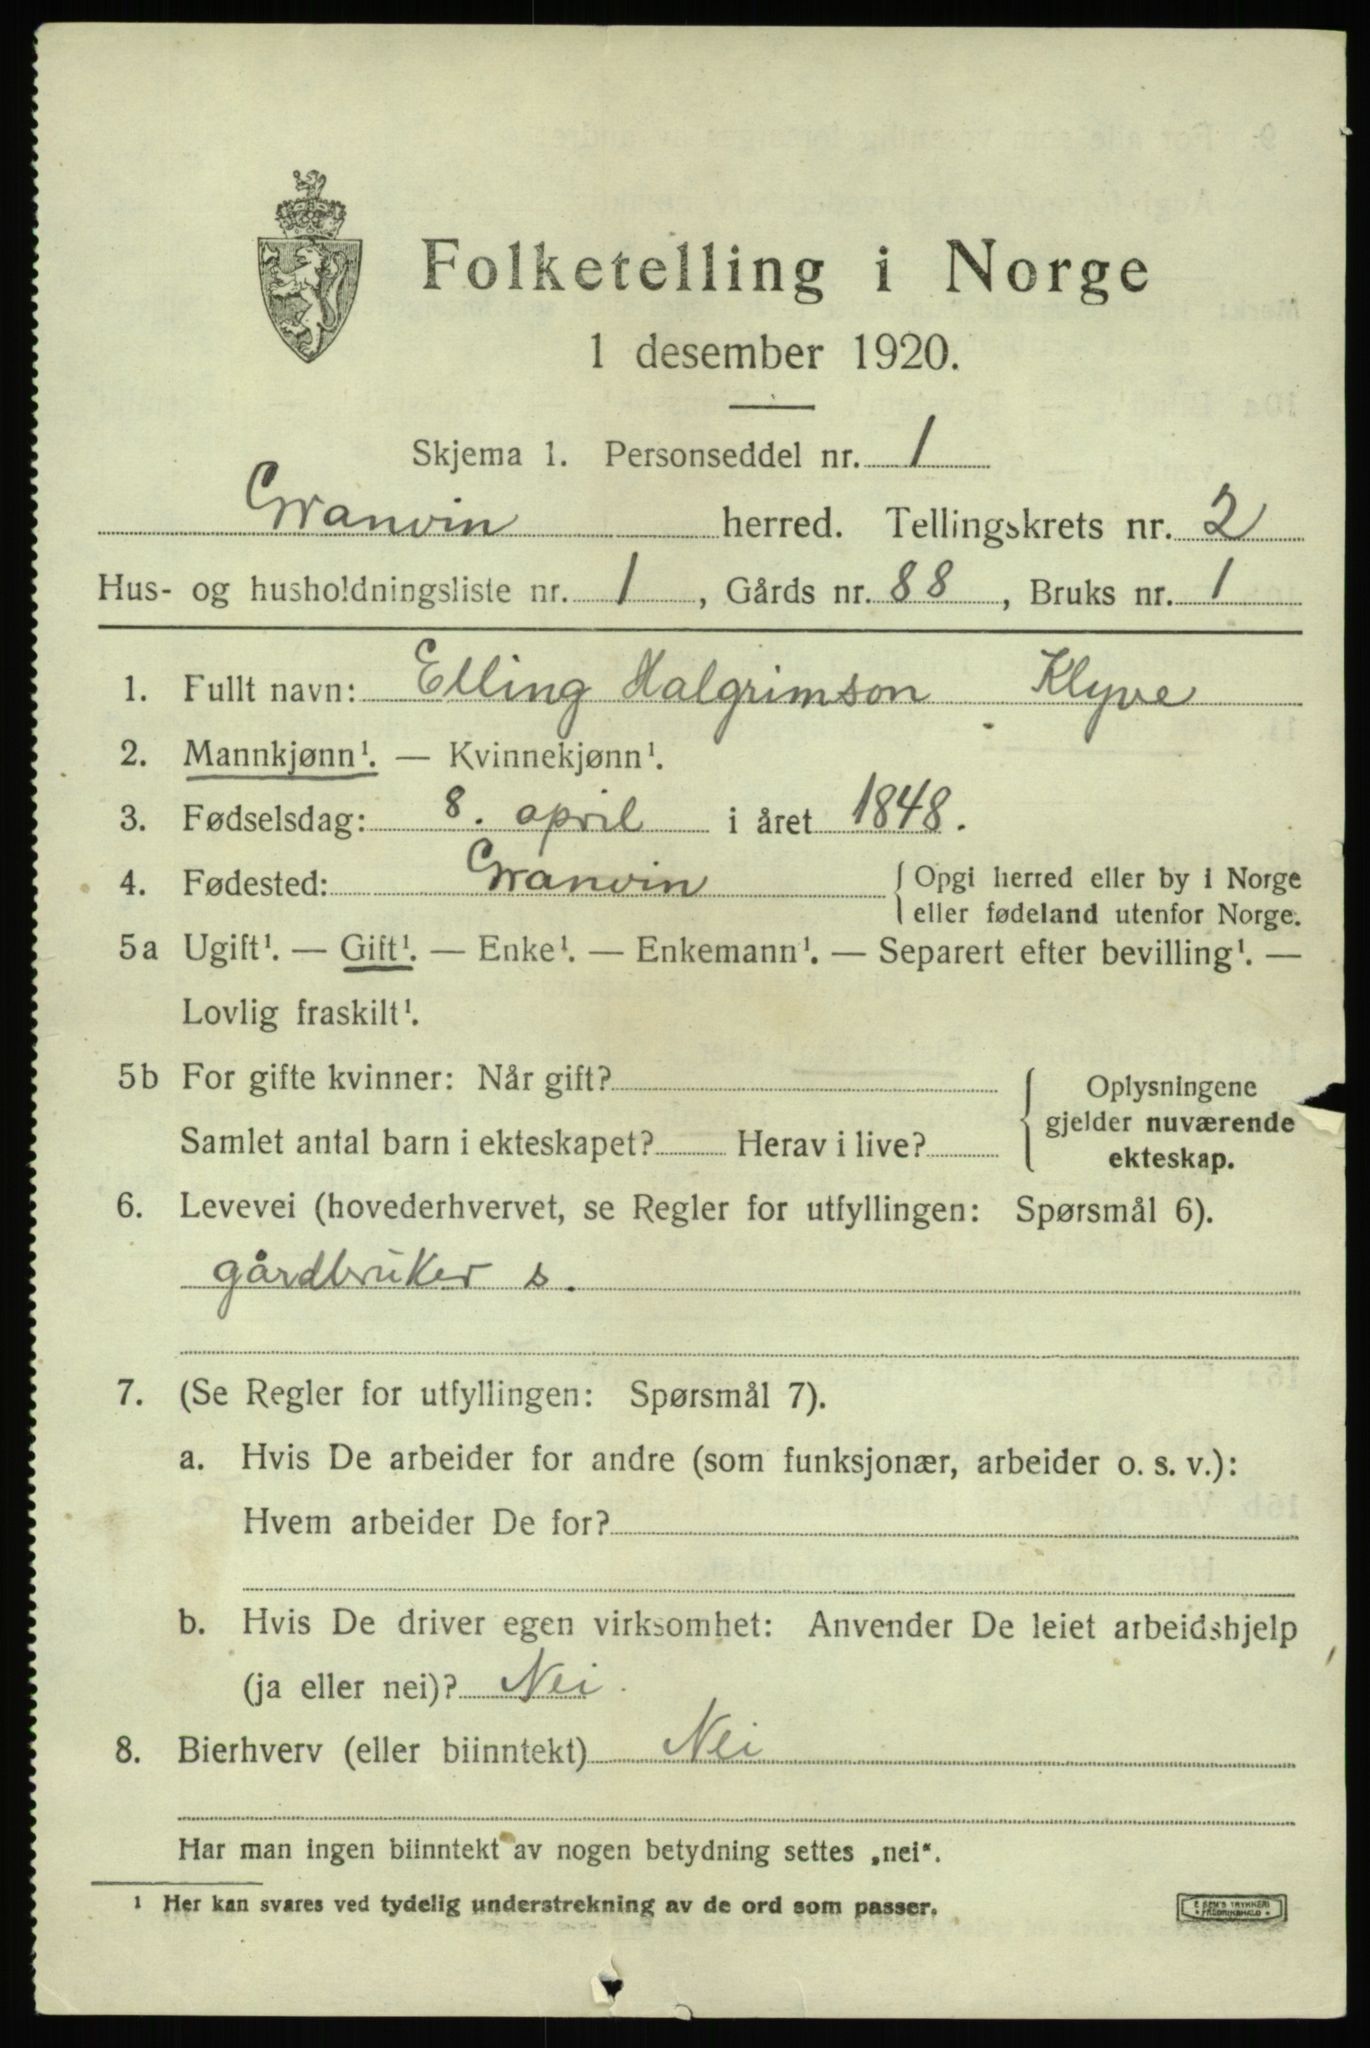 Folketelling i Norge
1 desember 1920.
Skjema 1. Personseddel nr. 1
Granvin herred. Tellingskrets nr. 2
Hus- og husholdningsliste nr. 1, Gårds nr. 88, Bruks nr. 1
1. Fullt navn: Elling Halgrimson Klyve
2. Mannkjønn¹. — Kvinnekjønn¹.
3. Fødselsdag: 8. april i året 1848.
4. Fødested: Granvin { Opgi herred eller by i Norge
eller fødeland utenfor Norge.
5a Ugift¹. — Gift¹. — Enke¹. — Enkemann¹. — Separert efter bevilling¹. —
Lovlig fraskilt¹.
5b For gifte kvinner: Når gift?
Samlet antal barn i ekteskapet? Herav i live?
{ Oplysningene
gjelder nuværende
ekteskap.
6. Levevei (hovederhvervet, se Regler for utfyllingen: Spørsmål 6).
gårdbruker s.
7. (Se Regler for utfyllingen: Spørsmål 7).
a. Hvis De arbeider for andre (som funksjonær, arbeider o. s. v.):
Hvem arbeider De for?
b. Hvis De driver egen virksomhet: Anvender De leiet arbeidshjelp
(ja eller nei)? Nei.
8. Bierhverv (eller biinntekt) Nei
Har man ingen biinntekt av nogen betydning settes „nei“.
¹ Her kan svares ved tydelig understrekning av de ord som passer.